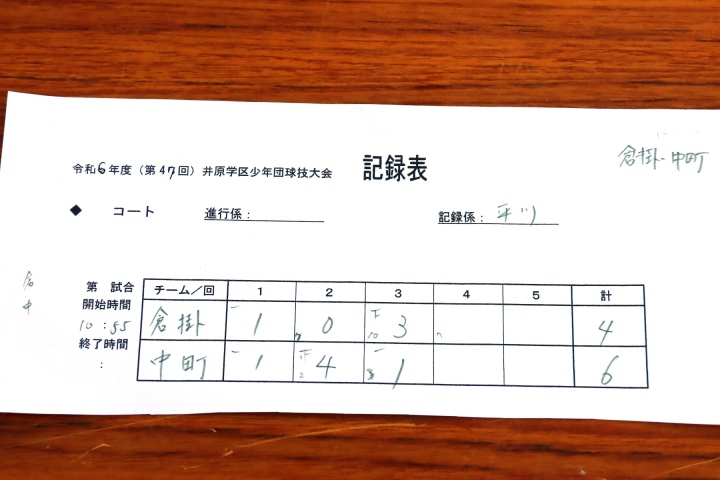 倉掛-中町
令和6年度(第47回)井原学区少年団球技大会 記録表
◆ コート 進行係: 記録係:平川
第 試合
開始時間
10:55
終了時間
:
倉
中
チーム/回 1 2 3 4 5 計
倉掛 1 0 3 4
中町 1 4 1 6